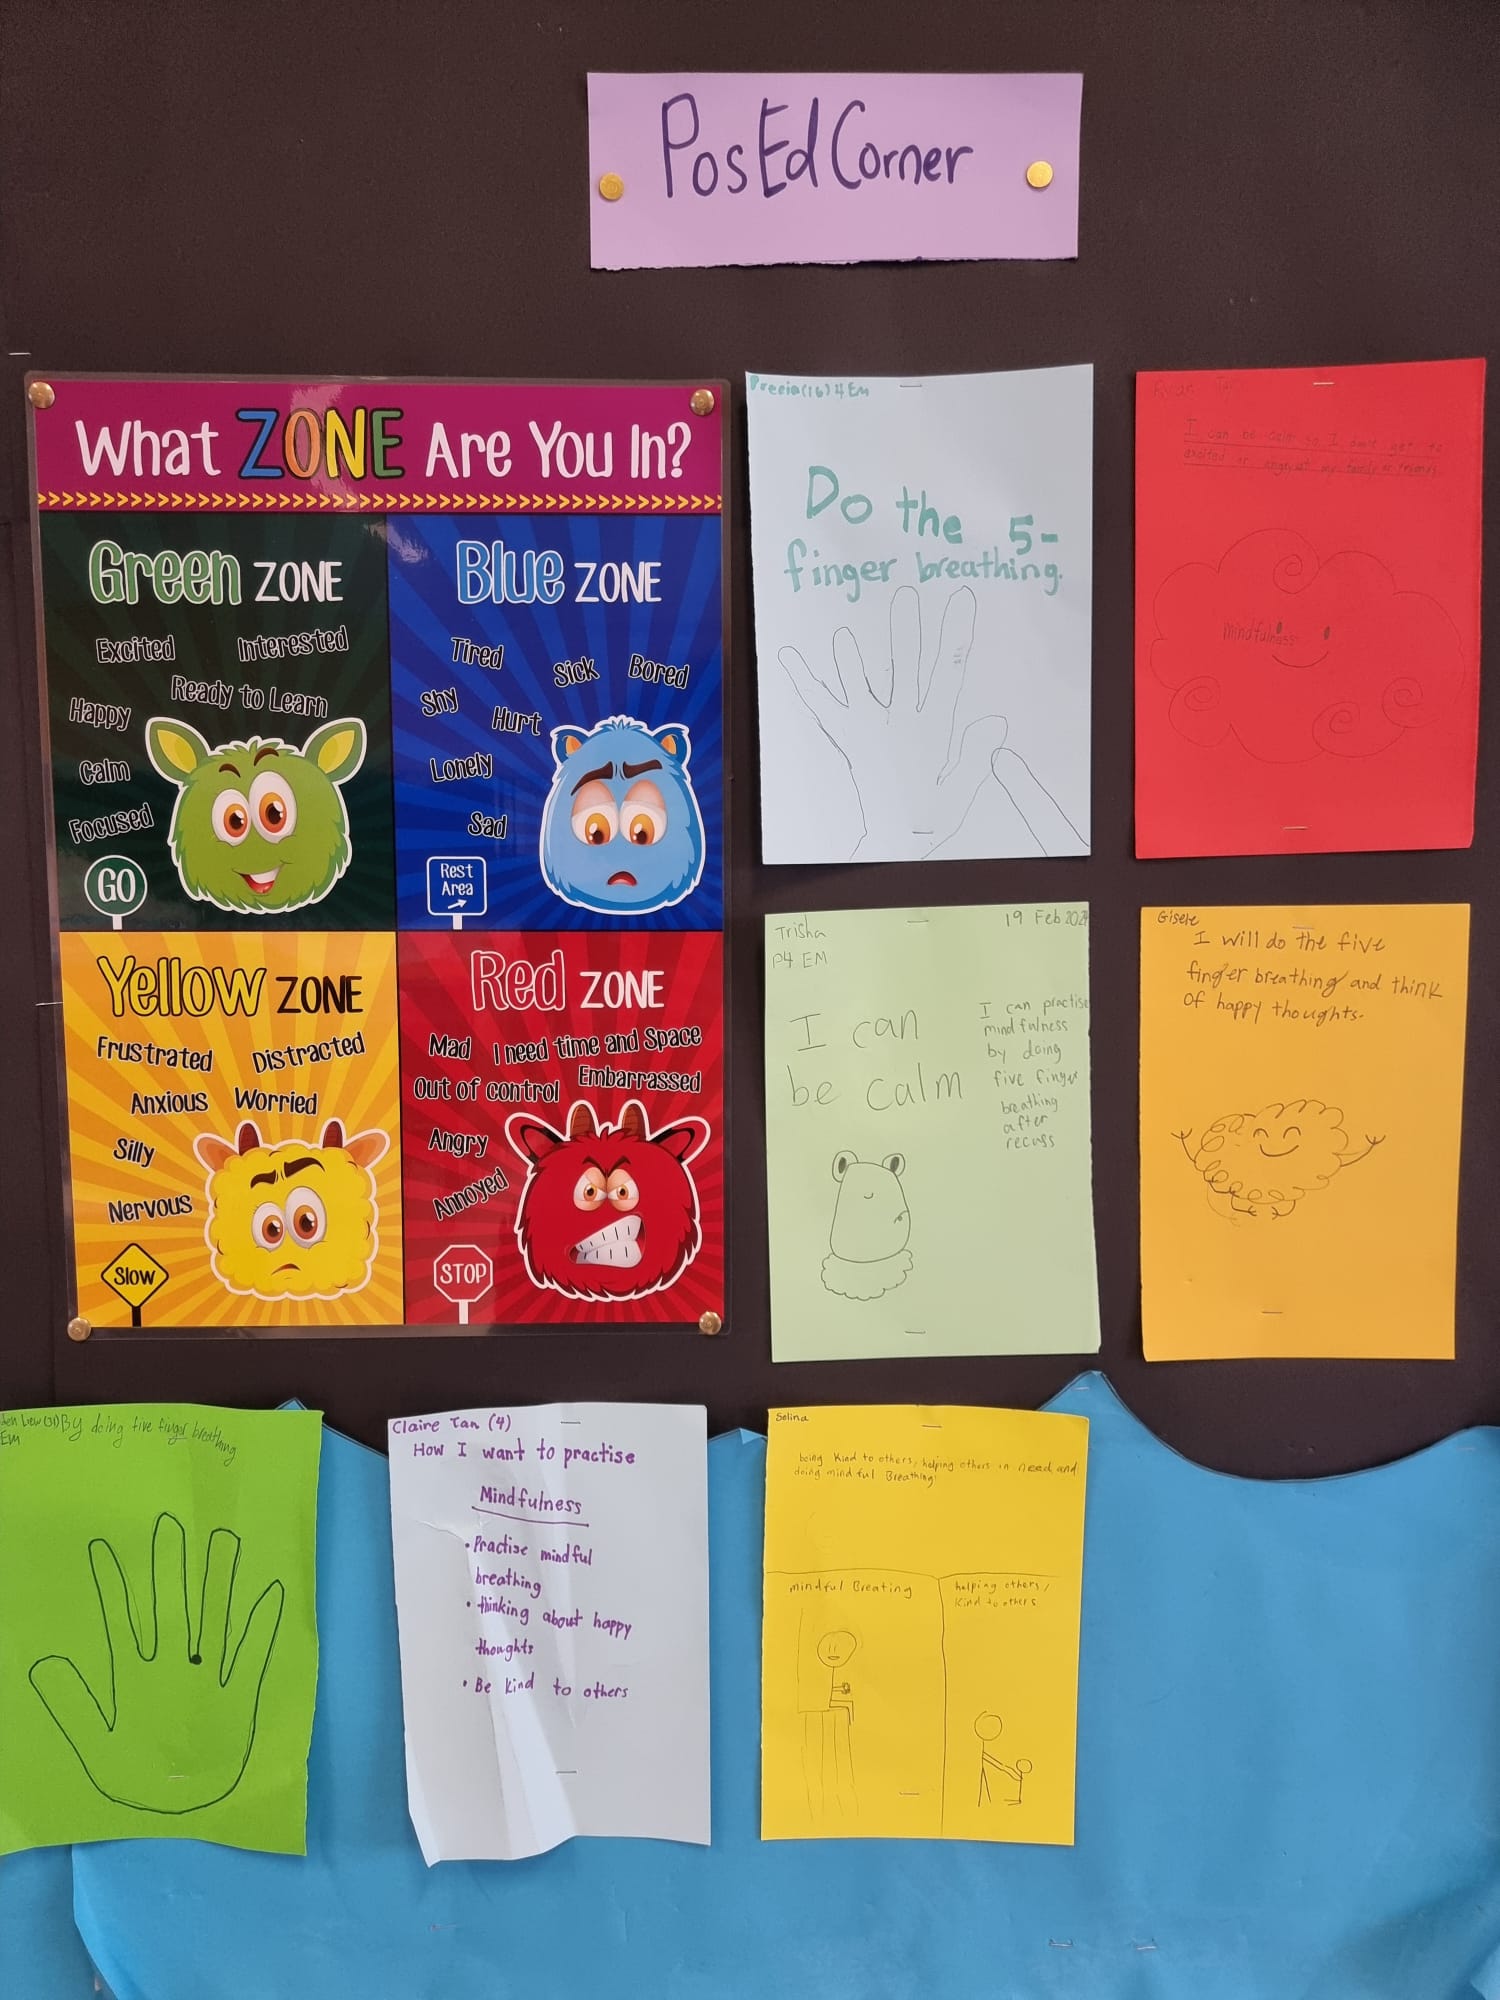 PosEd Corner
What ZONE Are You In?
Green ZONE
Excited
Interested
Ready to Learn
Happy
Calm
Focused
GO
Blue ZONE
Tired
Sick
Bored
Shy
Hurt
Lonely
Sad
Rest
Area
Yellow ZONE
Frustrated
Distracted
Anxious
Worried
Silly
Nervous
Slow
Red ZONE
Mad
I need time and Space
Out of control
Embarrassed
Angry
Annoyed
STOP
(16) 4 Em
Do the 5-
finger breathing.
I can be calm so I don't get to
excited or angry at my family or friends.
mindfulness
Trisha
19 Feb 2024
P4 EM
I can
be calm
I can practise
mindfulness
by doing
five finger
breathing
after
recuss
Gisele
I will do the five
finger breathing and think
of happy thoughts.
Liew (31) By doing five finger breathing
Em
Claire Tan (4)
How I want to practise
Mindfulness
• Practise mindful
breathing
• thinking about happy
thoughts
• Be kind to others
Selina
being kind to others, helping others in need and
doing mindful Breathing
mindful Breating
helping others/
kind to others